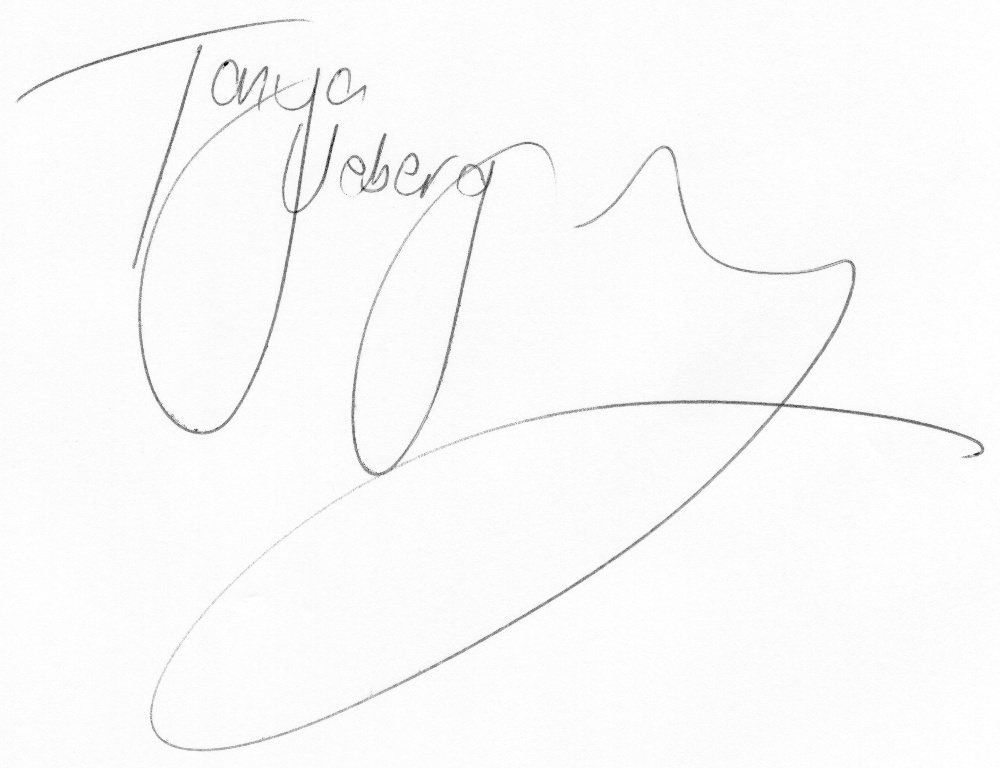 Tanya
Weberg